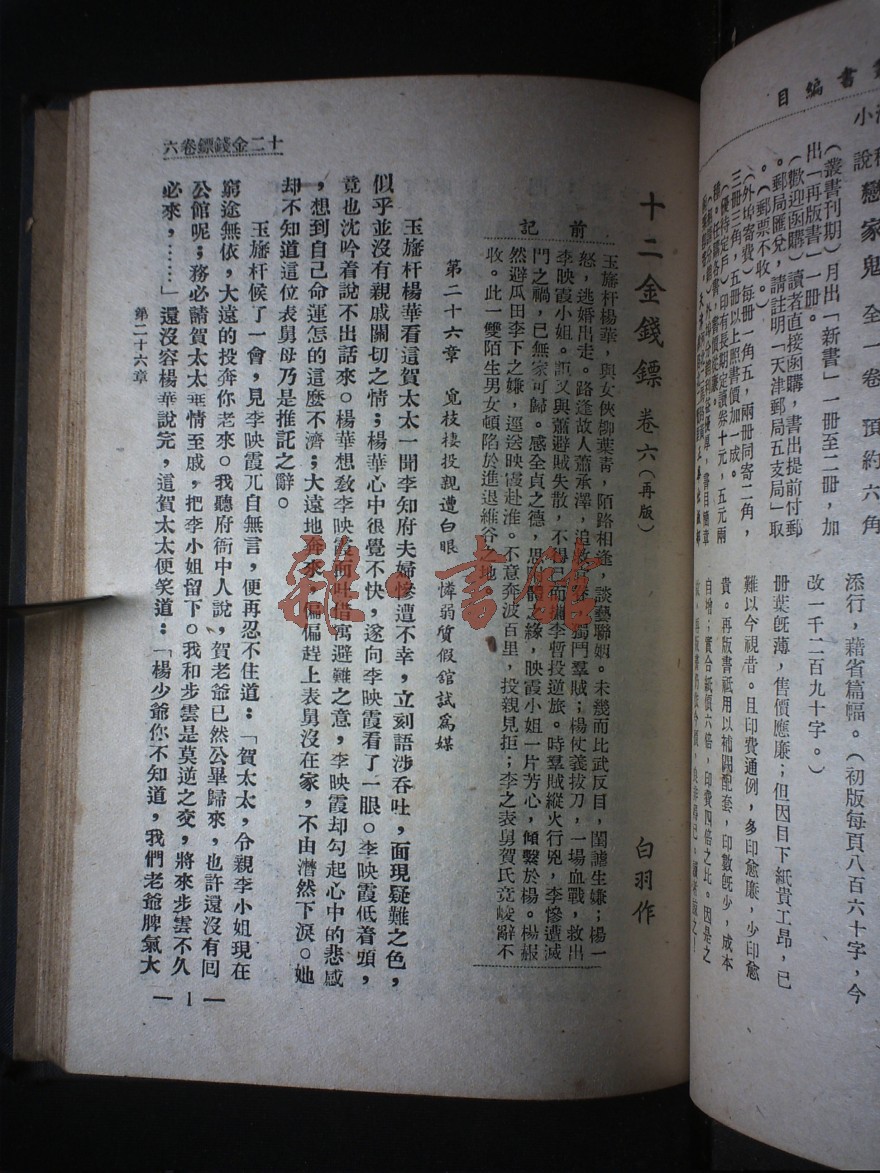 書編目
小說
戀家鬼 全一卷 預約六角
（叢書刊期）月出「新書」一冊至二冊，加
出「再版書」一冊。
（歡迎函購）讀者直接函購，書出提前付郵
。郵局匯兌，請註明「天津郵局五支局」取
。（郵票不收。）
（外埠寄費）每冊一角五，兩冊同寄二角，
三冊三角，五冊以上照書價加一成。
（優待定戶）印有長期定讀券十元，五元兩
添行，藉省篇幅。（初版每頁八百六十字，今
改一千二百九十字。）
冊葉旣薄，售價應廉；但因目下紙貴工昂，已
難以今視昔。且印費通例，多印愈廉，少印愈
貴。再版書祗用以補闕配套，印數旣少，成本
自增；實合紙價六倍，印費四倍之比。因是之
十二金錢鏢 卷六（再版） 白羽作
前記
玉旛杆楊華，與女俠柳葉青，陌路相逢，談藝聯姻。未幾而比武反目，閨謔生嫌；楊一
怒，逃婚出走。路逢故人蕭承澤，追救 獨鬥羣賊；楊仗義拔刀，一場血戰，救出
李映霞小姐。詎又與蕭避賊失散，不得已而攜李暫投逆旅。時羣賊縱火行兇，李慘遭滅
門之禍，已無家可歸。感全貞之德，思附體之緣，映霞小姐一片芳心，傾繫於楊。楊
然避瓜田李下之嫌，逕送映霞赴淮。不意奔波百里，投親見拒；李之表舅賀氏竟峻辭不
收。此一雙陌生男女頓陷於進退維谷之地
第二十六章 覓枝棲投親遭白眼 憐弱質假舘試爲媒
玉旛杆楊華看這賀太太一聞李知府夫婦慘遭不幸，立刻語涉吞吐，面現疑難之色，
似乎並沒有親戚關切之情；楊華心中很覺不快，遂向李映霞看了一眼。李映霞低着頭，
竟也沈吟着說不出話來。楊華想教李映霞面吐借寓避難之意，李映霞却勾起心中的悲感
，想到自己命運怎的這麼不濟；大遠地奔來，偏偏趕上表舅沒在家，不由潸然下淚。她
却不知道這位表舅母乃是推託之辭。
玉旛杆候了一會，見李映霞兀自無言，便再忍不住道：「賀太太，令親李小姐現在
窮途無依，大遠的投奔你老來。我聽府衙中人說，賀老爺已然公畢歸來，也許還沒有囘
公館呢；務必請賀太太垂情至戚，把李小姐留下。我和步雲是莫逆之交，將來步雲不久
必來，……」還沒容楊華說完，這賀太太便笑道：「楊少爺你不知道，我們老爺脾氣太
十二金錢鏢卷六
第二十六章
— 1 —
雜·書館